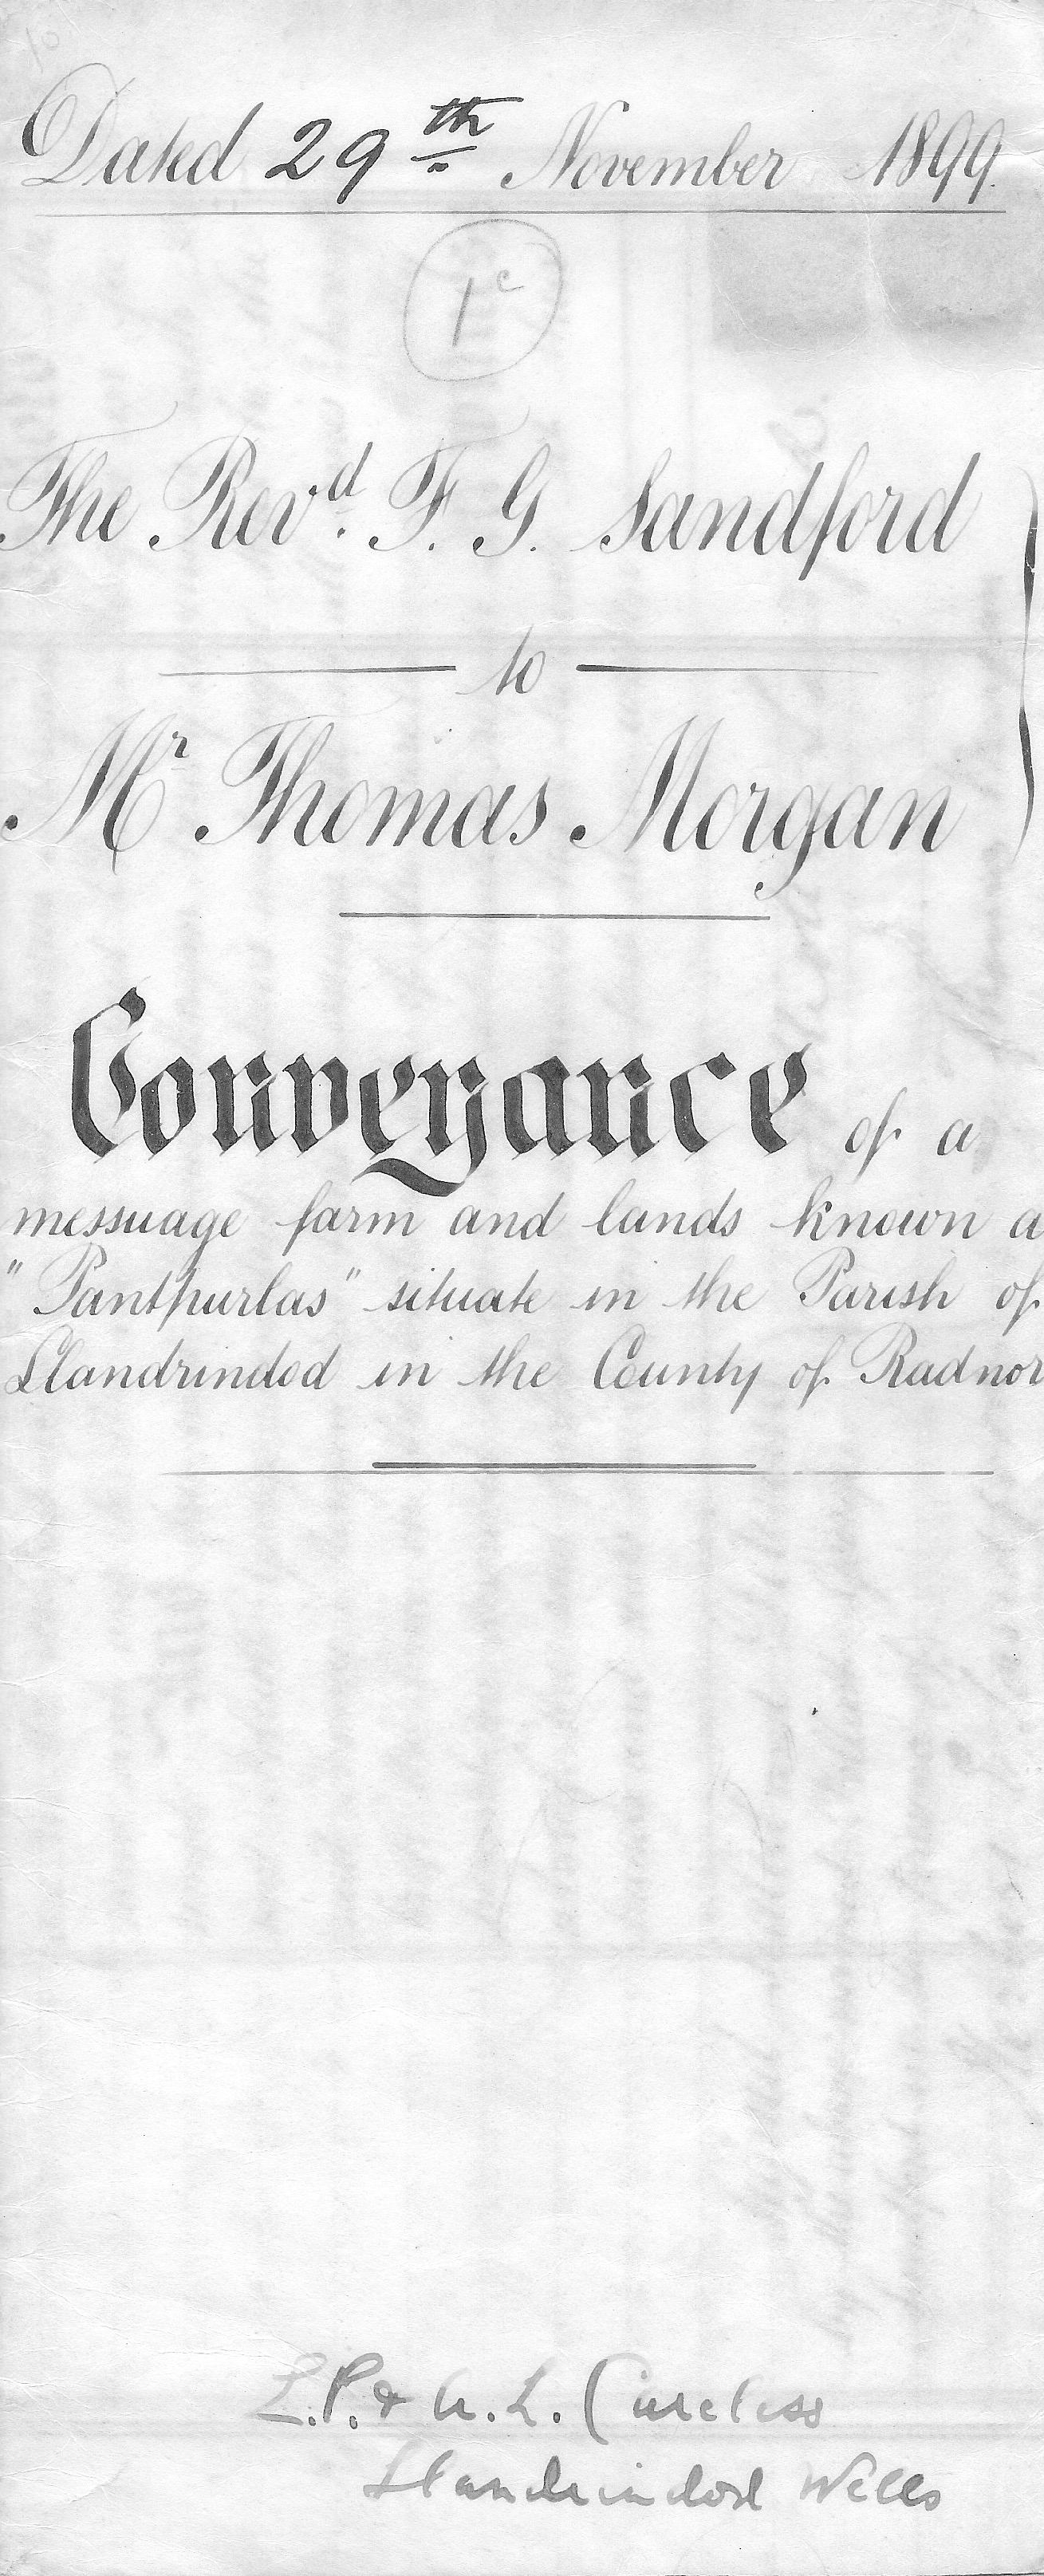 Dated 29th November 1899.
1c
The Revd. F. G. Sandford
to
Mr Thomas Morgan
Conveyance of a
messuage farm and lands known a
"Panthurlas" situate in the Parish of
Llandrindod in the County of Radnor
& A. L. Careless
Llandrindod Wells